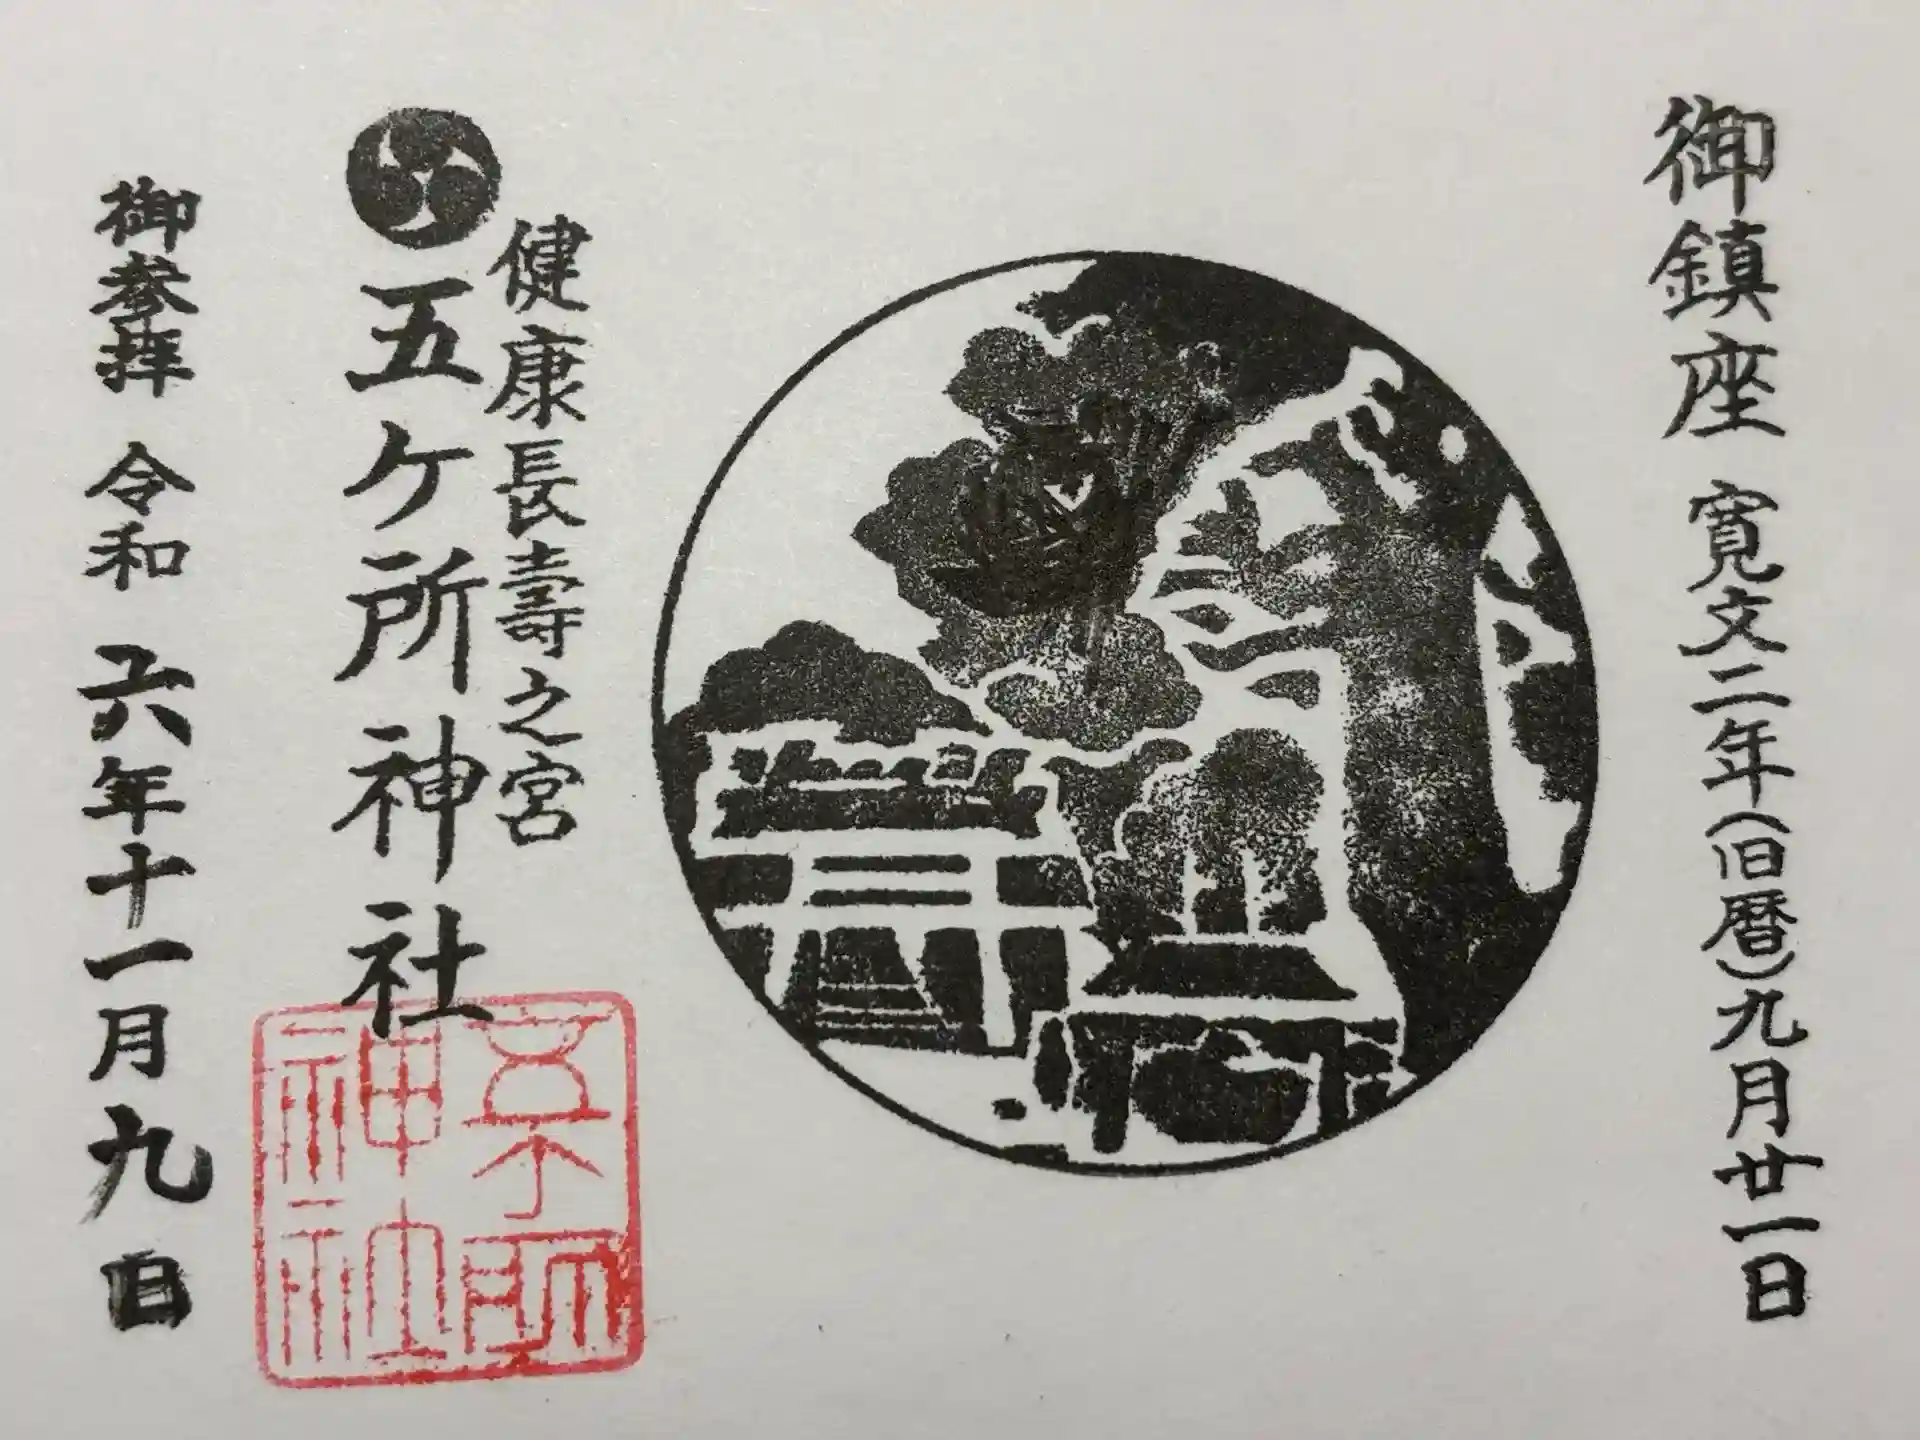 御鎮座 寛文二年(旧暦)九月廿一日
健康長壽之宮
五ケ所神社
五ケ所
神社
御参拝 令和 六年十一月九日